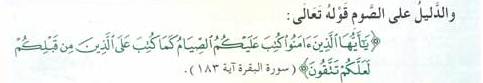 والدَّلِيلُ على الصَّومِ قَوْلُهُ تَعَالَى:
﴿يَٰٓأَيُّهَا ٱلَّذِينَ ءَامَنُوا۟ كُتِبَ عَلَيْكُمُ ٱلصِّيَامُ كَمَا كُتِبَ عَلَى ٱلَّذِينَ مِن قَبْلِكُمْ
لَعَلَّكُمْ تَتَّقُونَ﴾ (سورة البقرة آية ١٨٣).